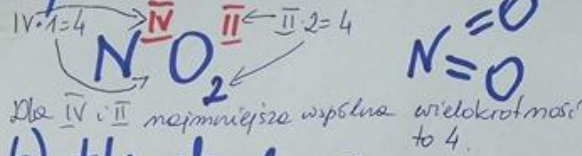 IV·1=4 IV II II·2=4
NO2 N=O =O
Dla IV i II najmniejsza wspólna wielokrotność
to 4.